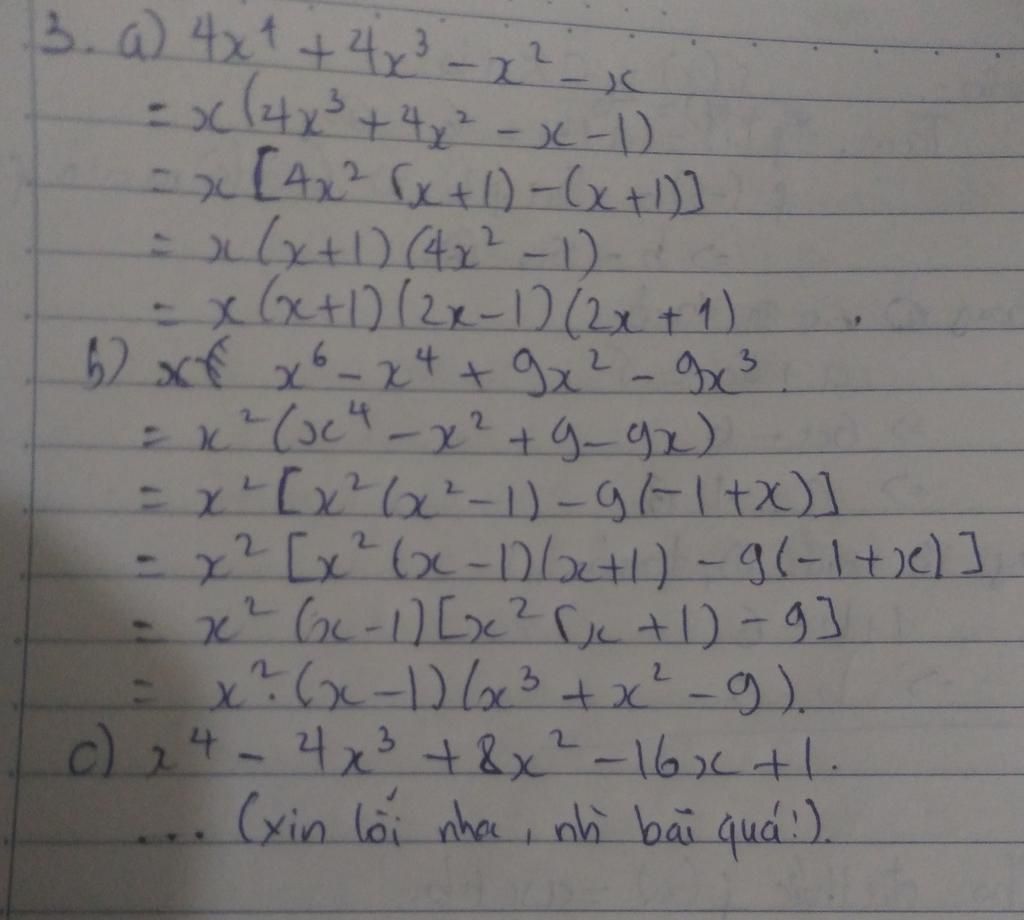 3. a) 4x⁴ + 4x³ – x² – x
= x(4x³ + 4x² – x – 1)
= x[4x²(x+1) – (x+1)]
= x(x+1)(4x² – 1)
= x(x+1)(2x–1)(2x+1)
b) x⁶ – x⁴ + 9x² – 9x³.
= x²(x⁴ – x² + 9 – 9x)
= x²[x²(x²–1) – 9(–1+x)]
= x²[x²(x–1)(x+1) – 9(–1+x)]
= x²(x–1)[x²(x+1) – 9]
= x².(x–1)(x³ + x² – 9).
c) x⁴ – 4x³ + 8x² – 16x + 1.
.... (xin lỗi nha, nhì bài quá!).